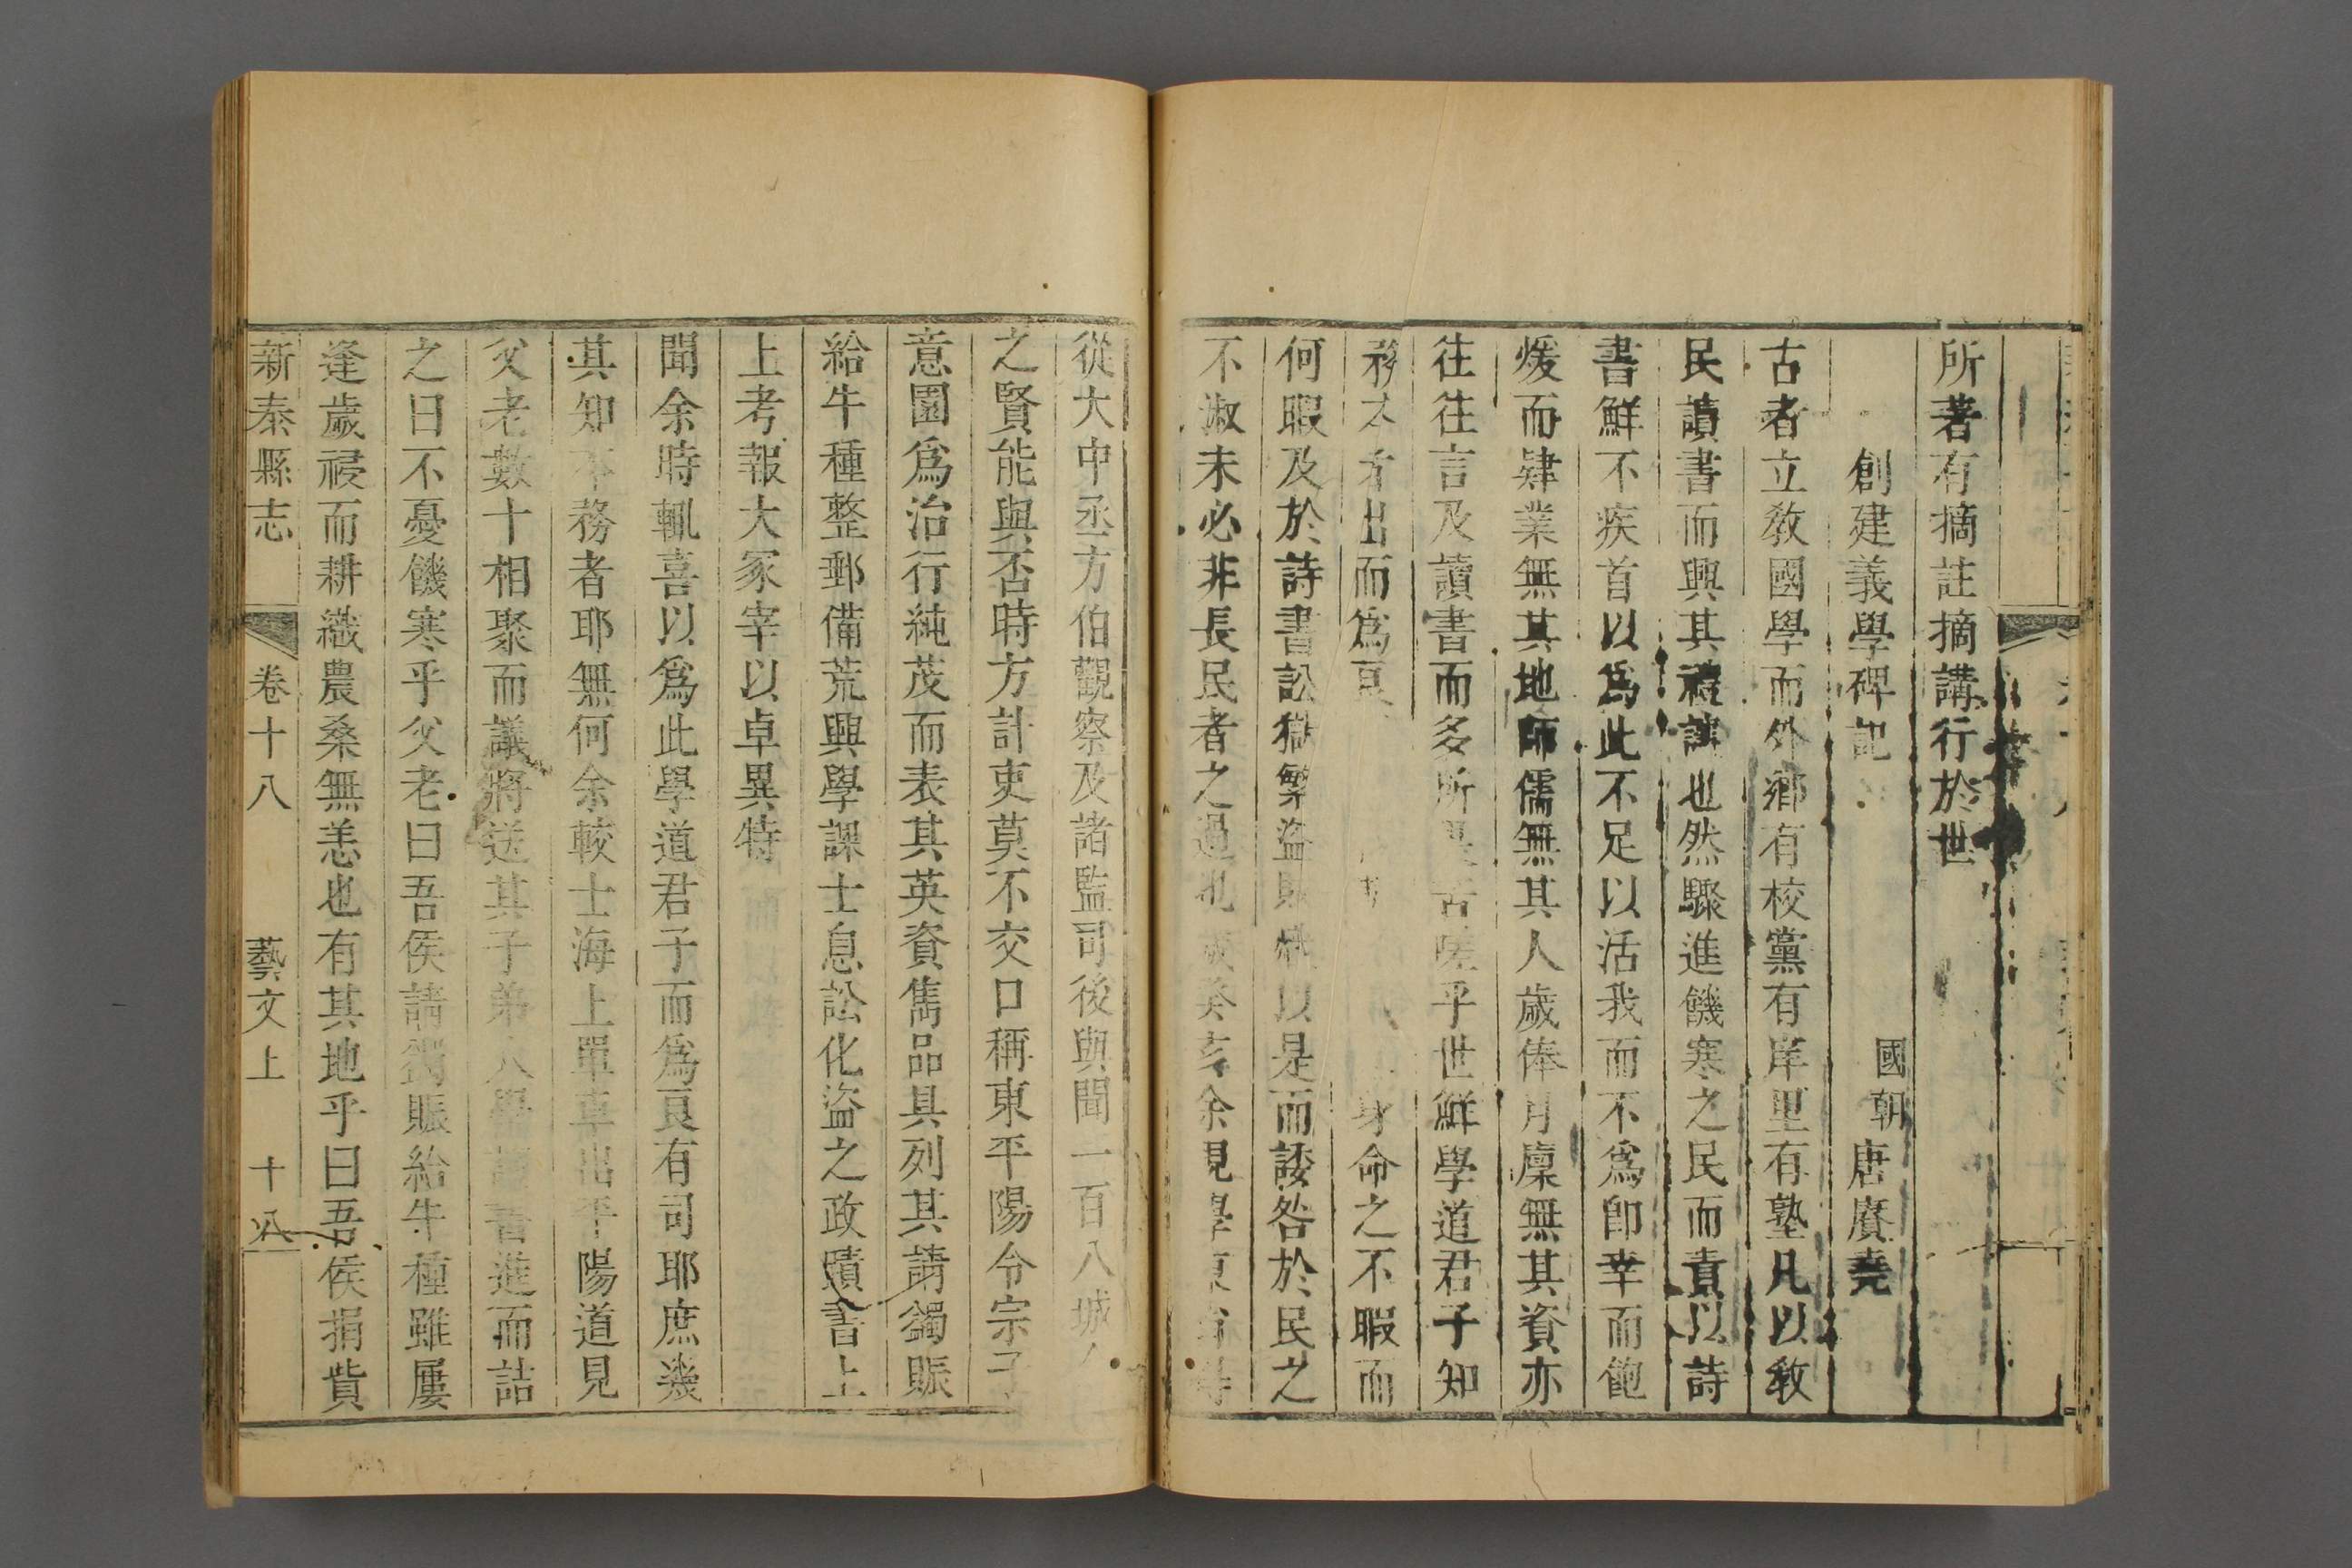 所著有摘註摘講行於世
創建義學碑記
國朝唐賡堯
古者立教國學而外鄉有校黨有庠里有塾凡以教
民讀書而興其禮讓也然驟進饑寒之民而責以詩
書鮮不疾首以為此不足以活我而不為卽幸而飽
煖而肄業無其地師儒無其人歲俸月廩無其資亦
徃徃言及讀書而多所苦嗟乎世鮮學道君子知
務本者出而為身命之不暇而
何暇及於詩書訟獄繁盜賊熾以是而諉咎於民之
不淑未必非長民者之過也歲癸亥余視學東
從大中丞方伯觀察及諸監司後與聞一百八城
之賢能與否時方計吏莫不交口稱東平陽令宗子
意園為治行純茂而表其英資雋品具列其請蠲賑
給牛種整郵備荒興學課士息訟化盜之政蹟書上
上考報大冢宰以卓異特
聞余時輒喜以為此學道君子而為良有司耶庶幾
其知本務者耶無何余較士海上單車出平陽道見
父老數十相聚而議將送其子弟入學讀書進而詰
之曰不憂饑寒乎父老曰吾侯請蠲賑給牛種雖屢
逢歲祲而耕織農桑無恙也有其地乎曰吾侯捐貲
新泰縣志 卷十八 藝文上 十八